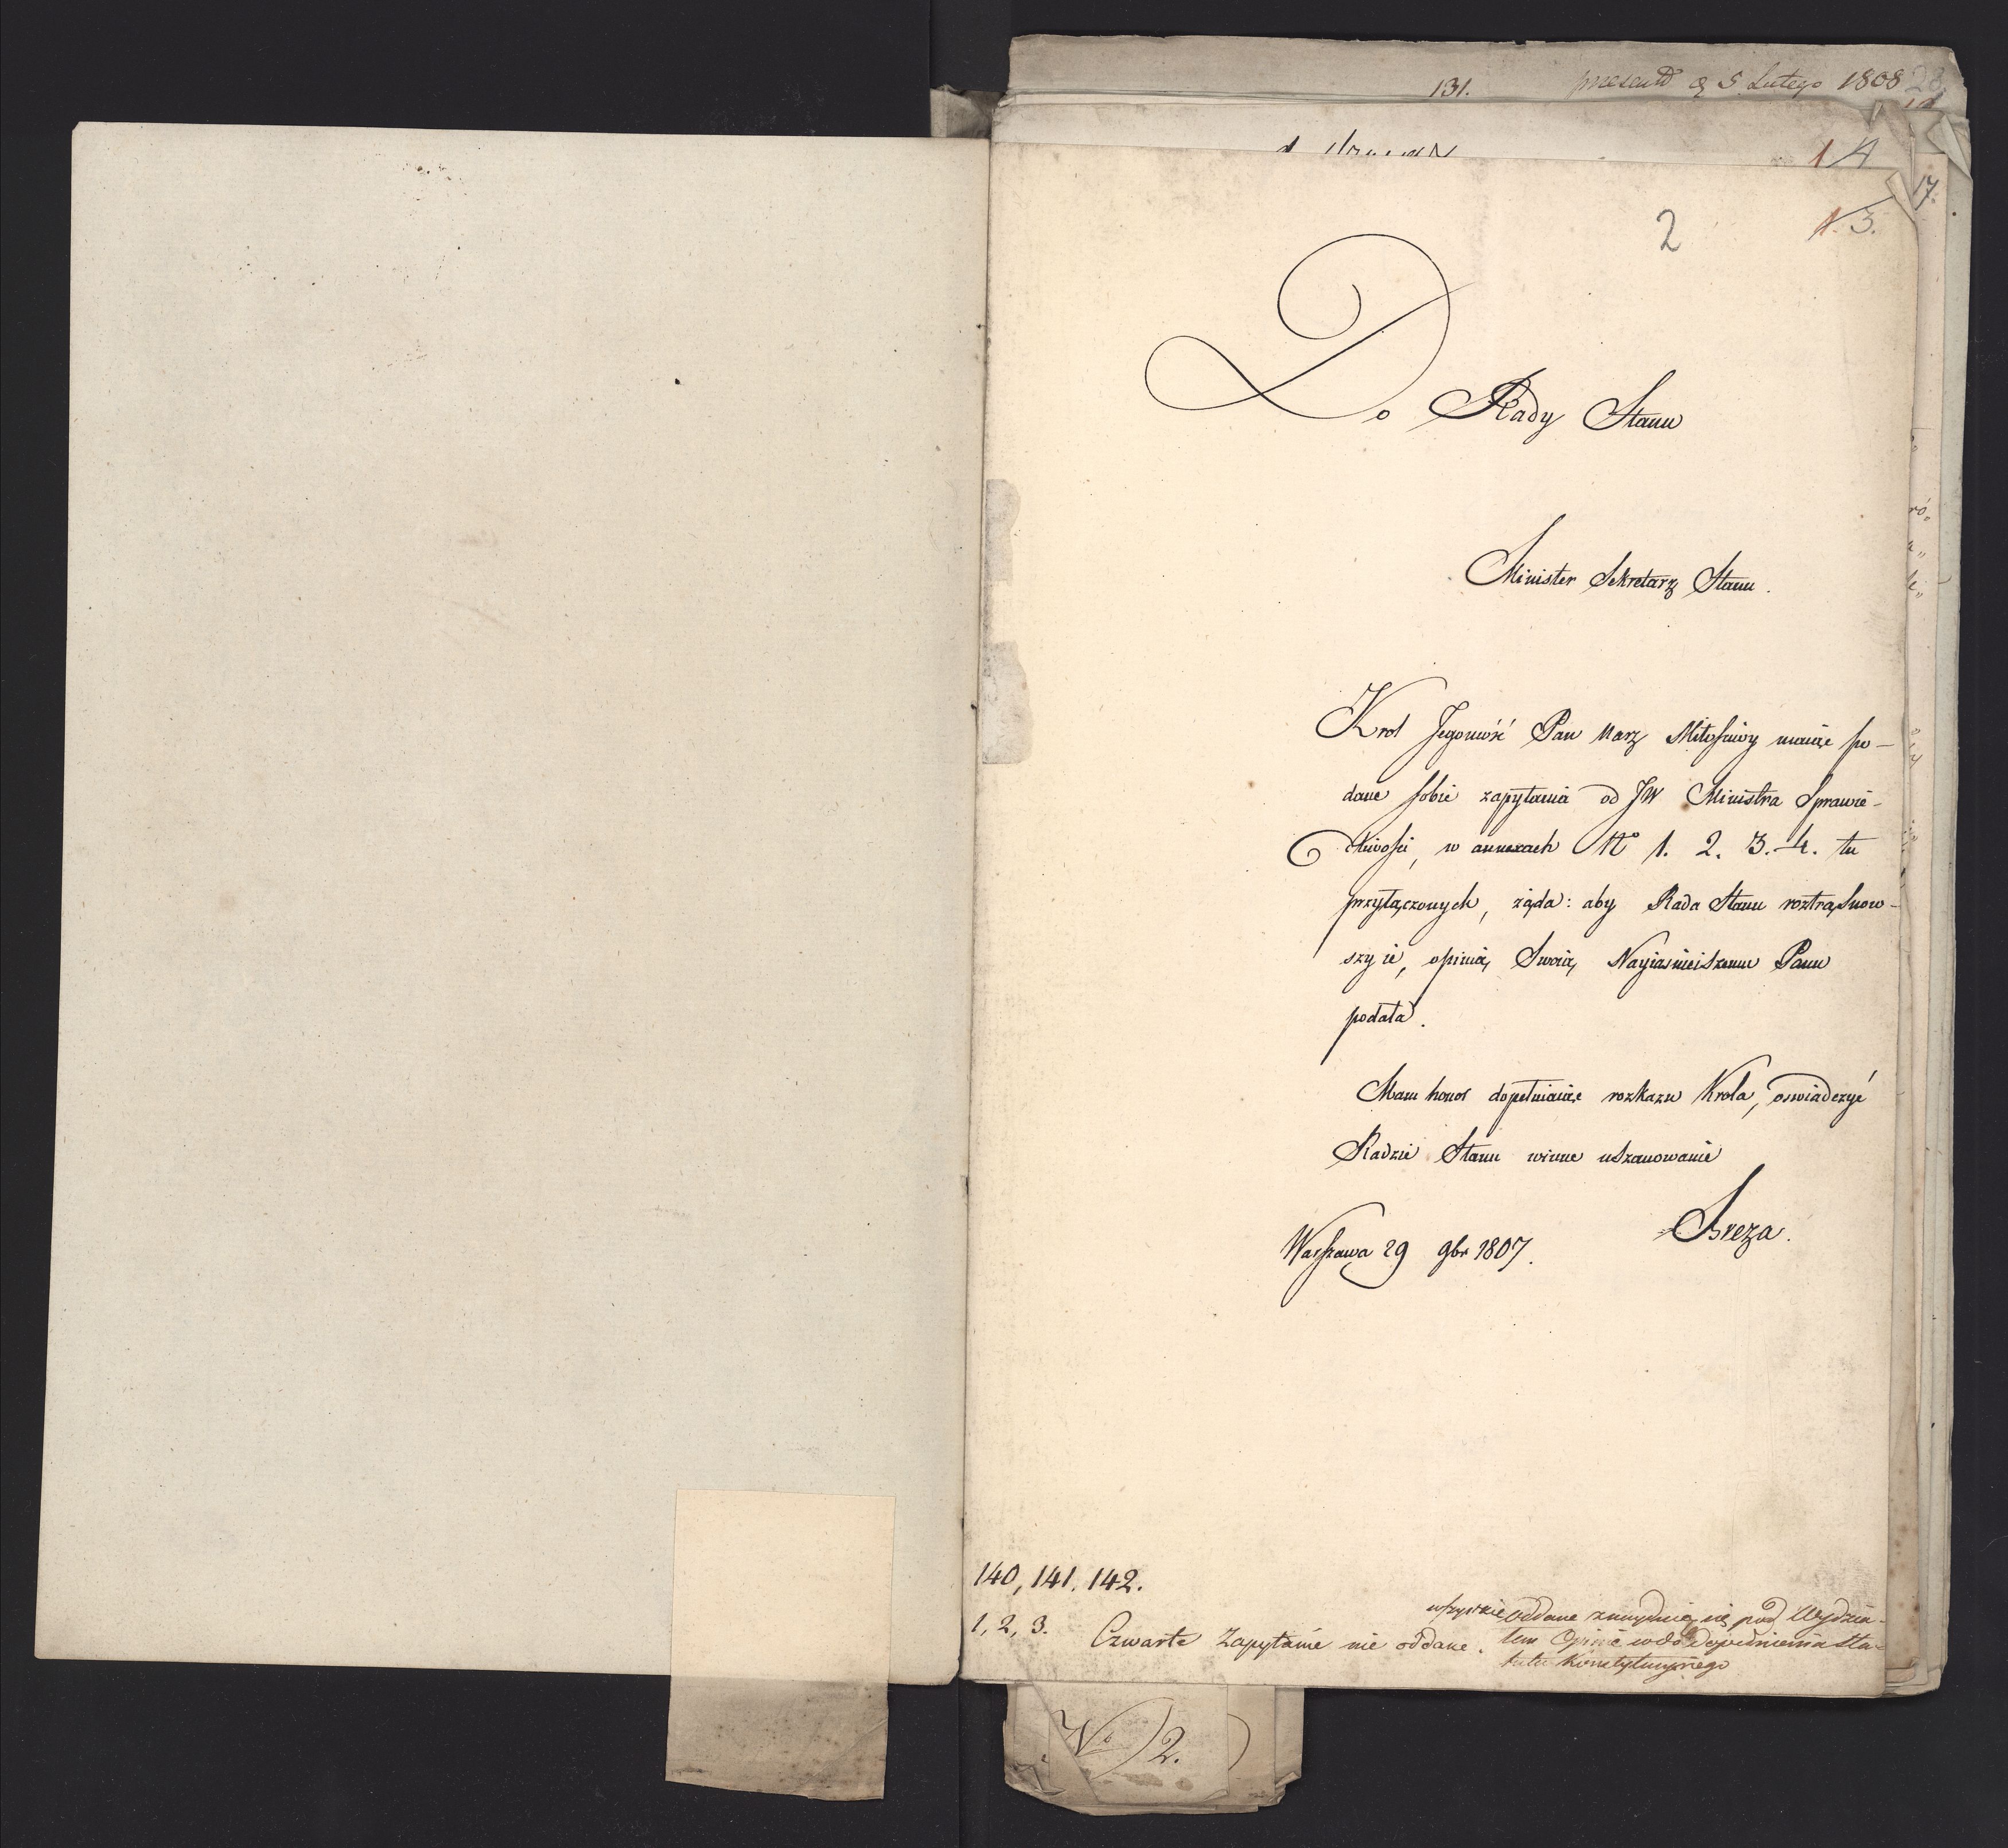 131. presentd 5 Lutego 1808
14
17.
2
1. 3.
Do Rady Stanu
Minister Sekretarz Stanu.
Krol Jegomość Pan Nasz Miłosciwy maiąc po-
dane sobie zapytania od JW Ministra Sprawie-
dliwosci, w annexach No 1. 2. 3. 4. tu
przyłączonych, żąda: aby Rada Stanu roztrząsnow-
szy ie, opinią Swoią Nayiasnieiszemu Panu
podała.
Mam honor dopełniaiąc rozkazu Krola, oswiadczyć
Radzie Stanu winne uszanowanie
Breza.
Warszawa 29 9br 1807.
140, 141. 142.
1, 2, 3. Czwarte Zapytanie nie oddane.
wszystkie oddane znayduią się pod Wydzia-
łem Opinie wdo Dopełnienia Sta-
tutu Konstytucyinego
No 2.